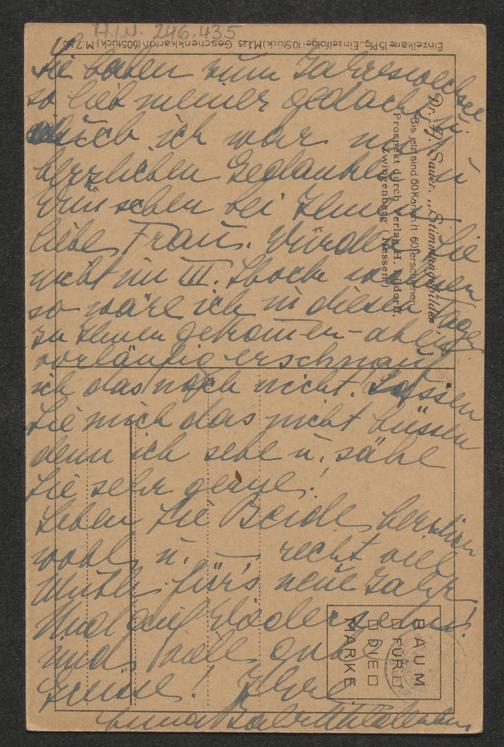 H.I.N. 246.435
Einzelkarte 15 Pfg. Einzelfolge (10 Stück) M. 1.25 Geschenkkarton (60 Stück) M. 7.50
Dr. H. Sauer: „Stimmungsbilder"
Bis jetzt sind 60 Karten (1-60) erschienen
Prospekt durch Verlag H.
Zwingenberg (Hessen)
Sie haben zum Jahreswechsel
so lieb meiner gedacht
auch ich war mit
herzlichen Gedanken u
Wünschen bei Ihnen
liebe Frau. Würden Sie
nicht im III. Stock
so wäre ich in diesen Tagen
zu Ihnen gekommen - aber
vorläufig erschnauf
ich das noch nicht. Lassen
Sie mich das nicht büssen
denn ich sehe u. sähe
Sie sehr gerne.
Leben Sie Beide herzlich
wohl u. — recht viel
für's neue Jahr
Und auf Wiedersehen!
und viele gute
Grüsse! Ihre
Anna
RAUM
FÜR
DIE
MARKE